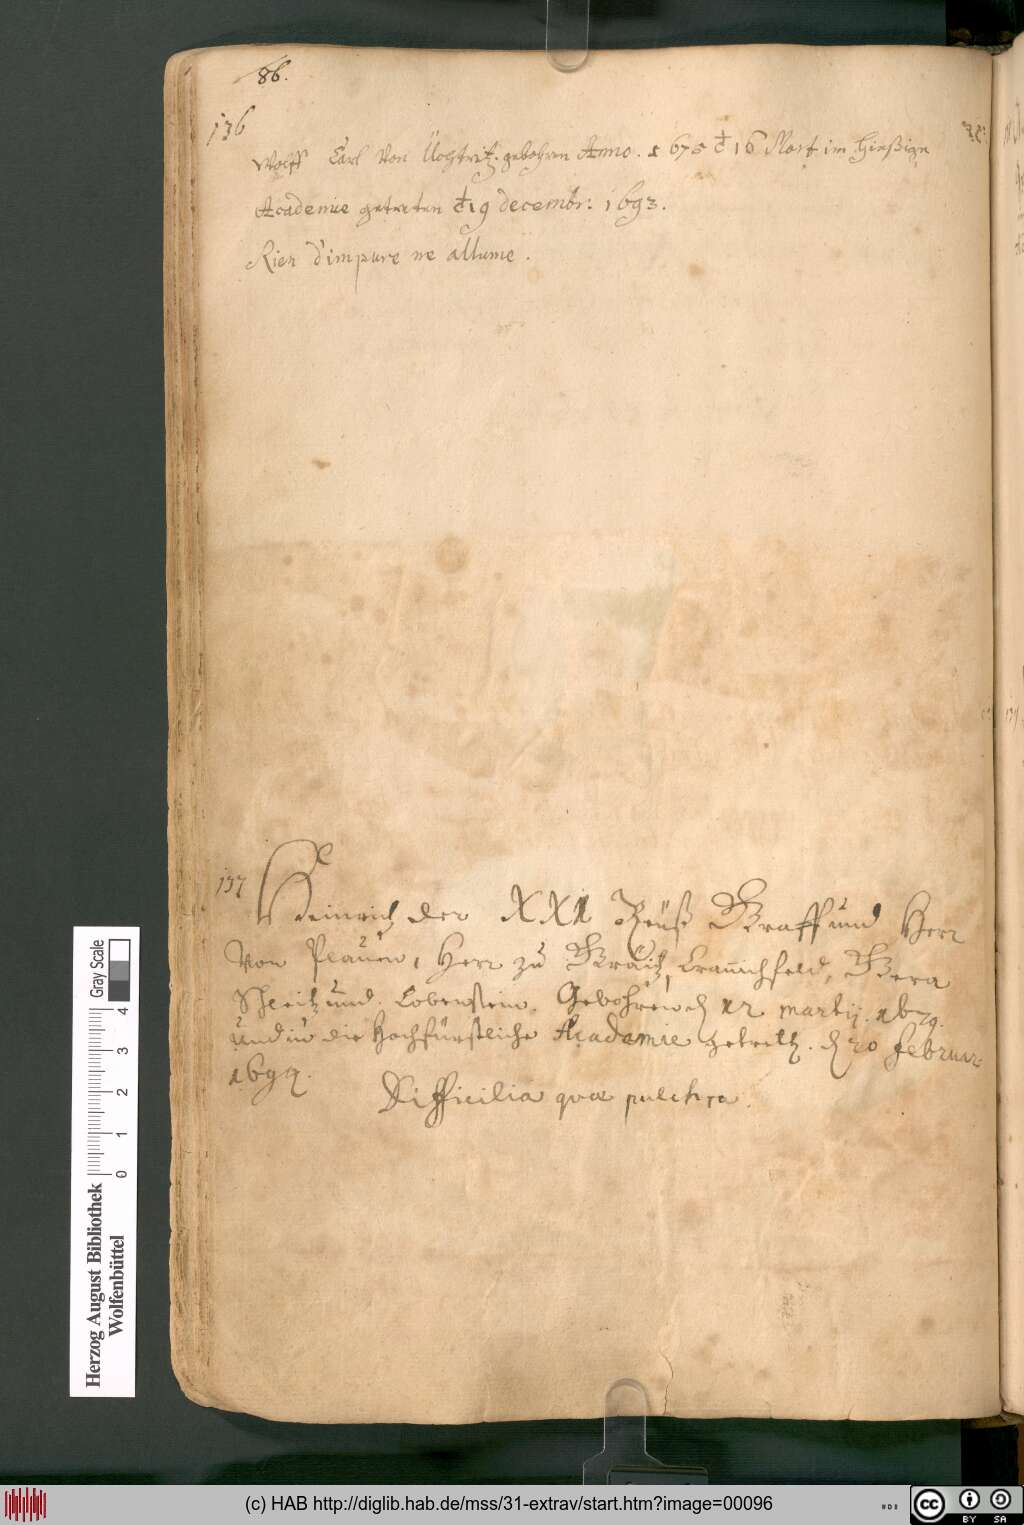 86.
136
Wolff Carl Von Üchtritz. gebohren Anno. 1675 d 16 Mart im hießigen
Academie getreten d 19 decembr: 1693.
Rien d'impure ne allume.
137
Heinrich der XXI Reüß Graff und Herr
Von Plauen, Herr zu Graitz, Crannichfeld, Gera
Schleitz und. Lobenstein. Gebohren d 12 martij. 1679.
und in die Hochfürstliche Academie getrettn. d 20 februar
1694.
Difficilia quæ pulchra.
Herzog August Bibliothek
Wolfenbüttel
Gray Scale
0 1 2 3 4
(c) HAB http://diglib.hab.de/mss/31-extrav/start.htm?image=00096
cc BY SA